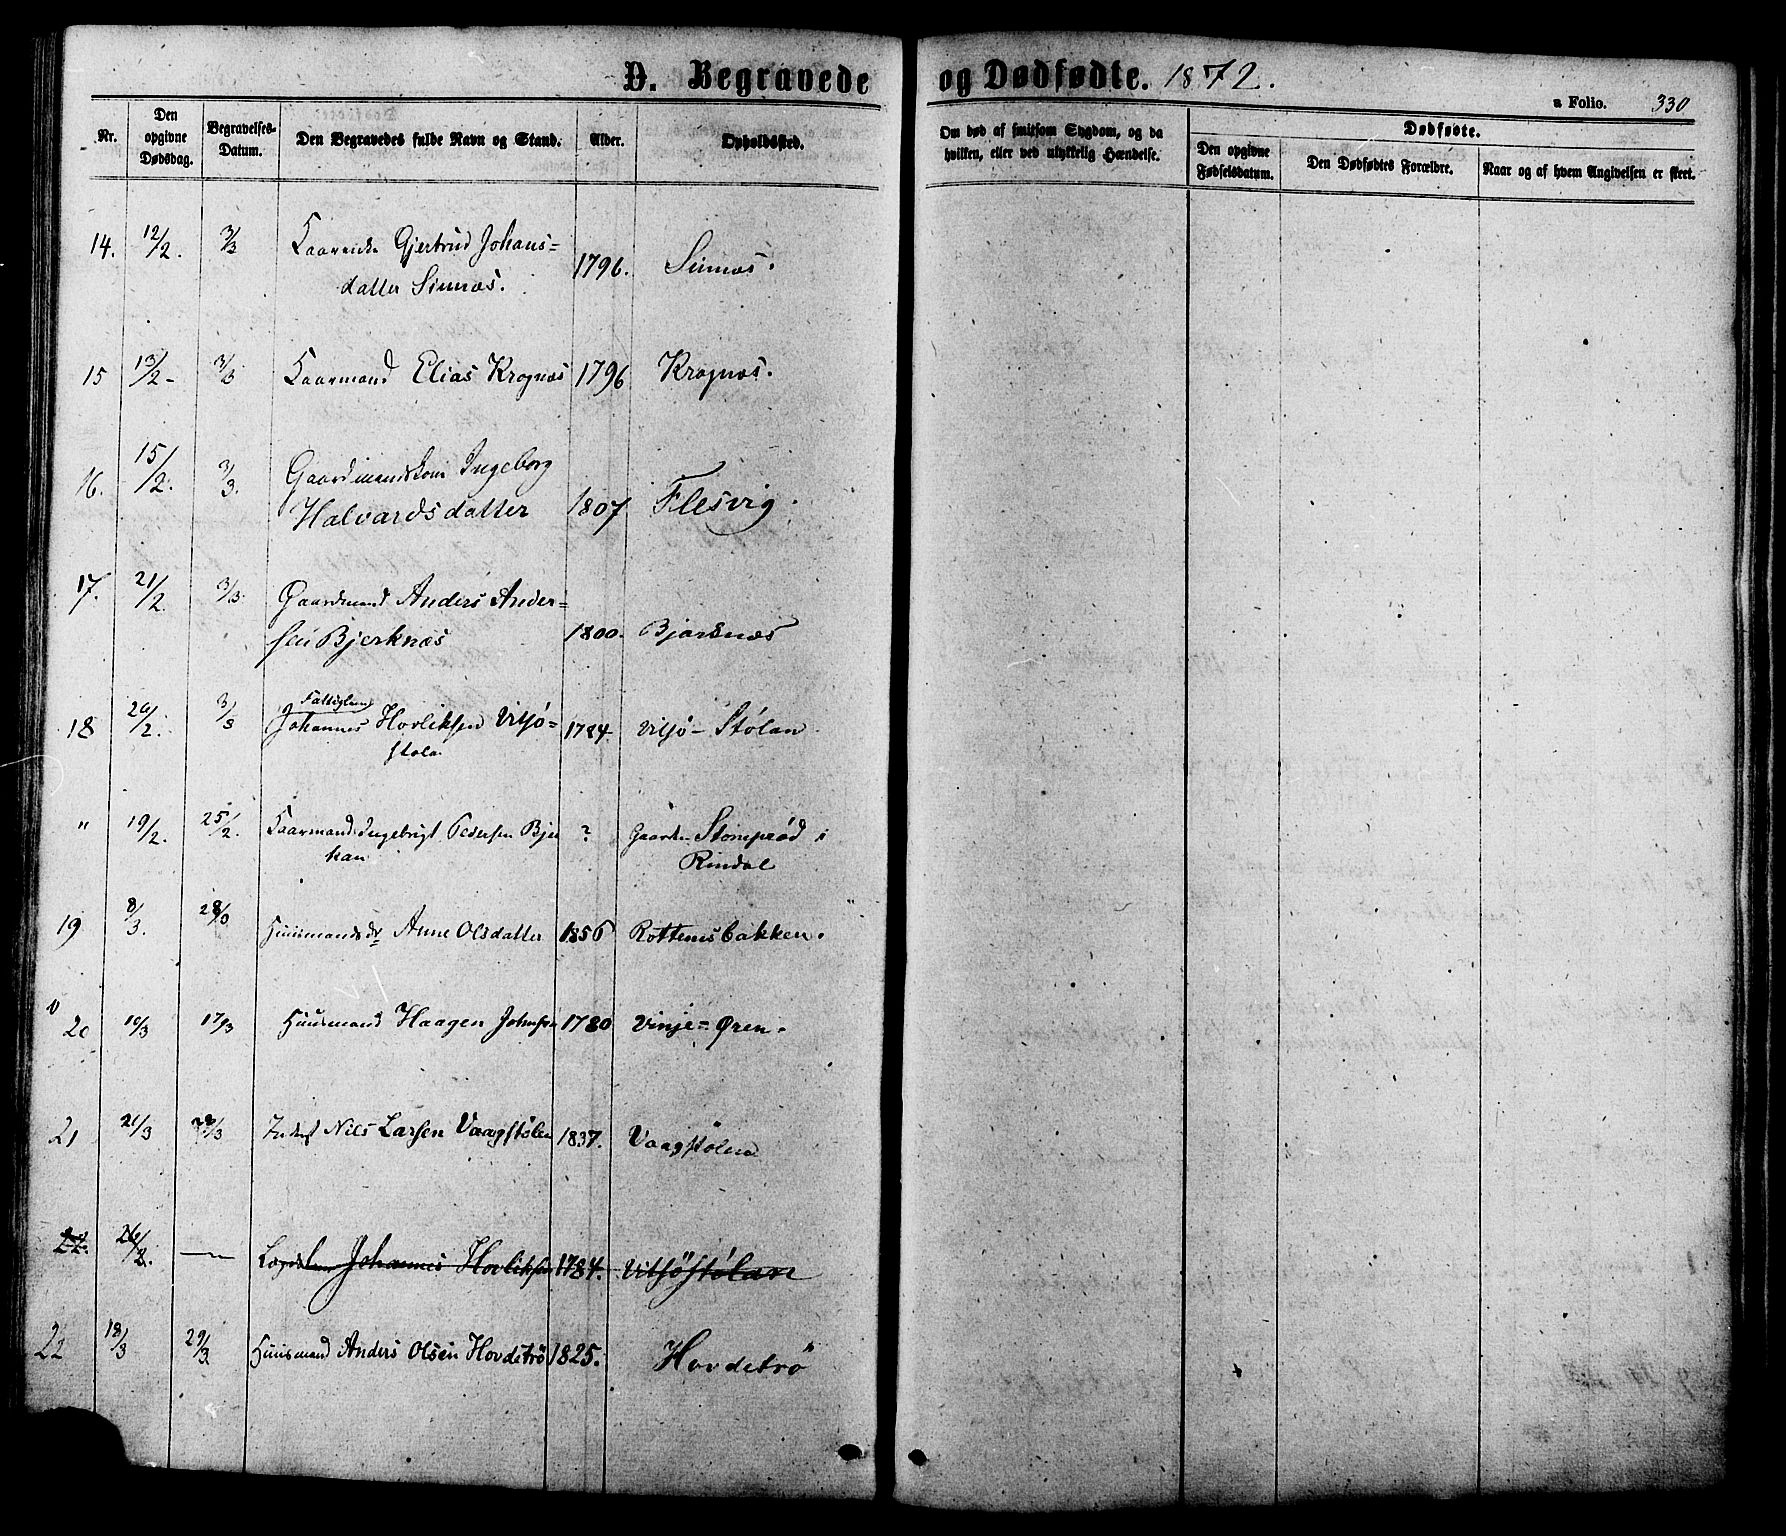 D. Begravede og Dødfødte. 1872.
a Folio. 330
Nr.
Den opgivne Dødsdag.
Begravelses-Datum.
Den Begravedes fulde Navn og Stand.
Alder.
Opholdssted.
Om død af smitsom Sygdom, og da hvilken, eller ved ulykkelig Hændelse.
Dødfødte.
Den opgivne Fødselsdatum.
Den Dødfødtes Forældre.
Naar og af hvem Angivelsen er skeet.
14. 12/2. 3/3 Gjertrud Johans=
datter Sinnæs. 1796. Sinnæs.
15 13/2- 3/3 Kaarmand Elias Krognæs 1796 Krognæs.
16. 15/2. 3/3. Gaardmandskone Ingeborg
Halvardsdatter 1807 Flesvig.
17. 21/2 3/3. Gaardmand Anders Ander=
sen Bjerknæs 1800. Bjerknæs
Fattiglem
18 26/2. 3/3 Johannes Hovliksen Vitsø= 1784. Vitsø-Stølan
støla
" 19/2. 25/2. Kaarmand Ingebrigt Pedersen Bjer ? Gaarden Stomprød i
kan Rindal
19 8/3. 28/3 Huusmandsdr Anne Olsdatter 1856 Rottemsbakken.
20 10/3 17/3 Huusmand Haagen Johnsen 1780 Vinje=Øren.
21 21/3 /3 Inderst Nils Larsen Vaagstölen 1837. Vaagstölen
22. 26/2. — Johannes Hovliksen 1784. Vitsøstølan
22 18/3 29/3. Huusmand Anders Olsen Hovdetrö 1825. Hovdetrö